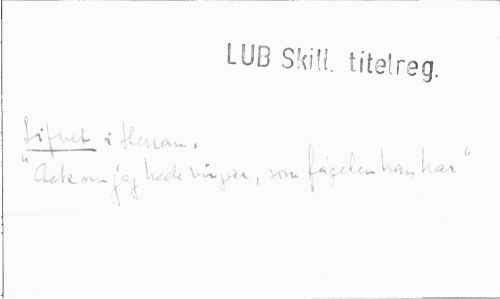 LUB Skill. titelreg.
Lifvet i Herran.
"Ack om jag hade vingar, som fågelen han har"